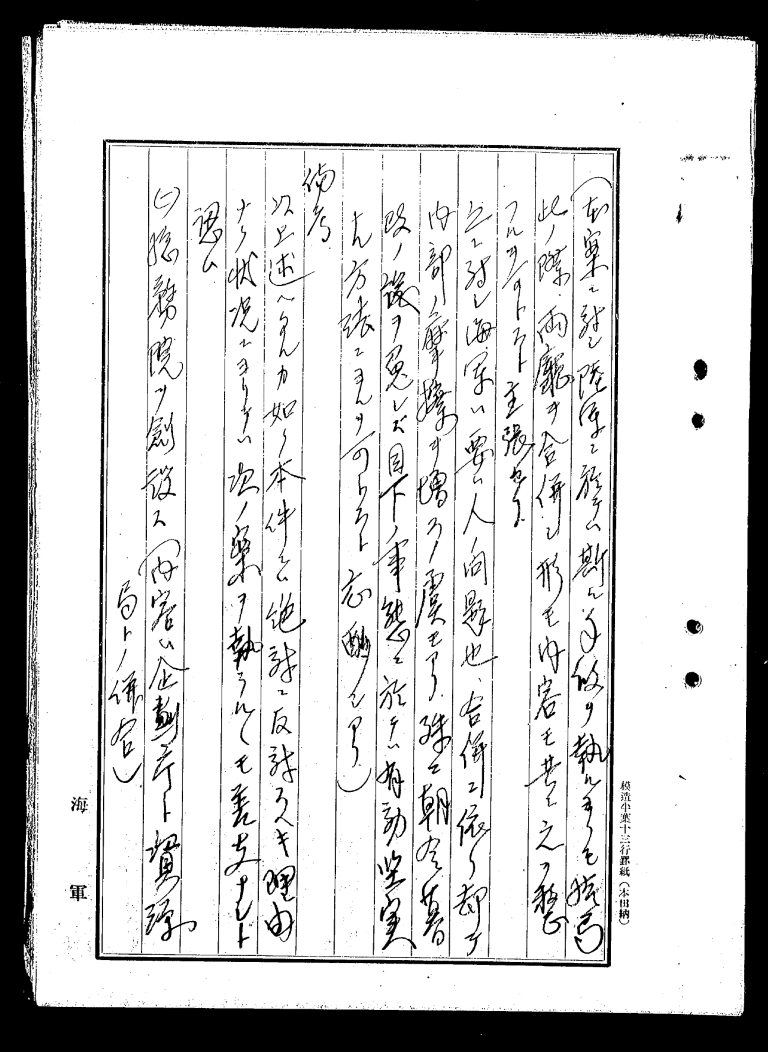 (本案ニ対シ陸軍ニ於テハ斯ル手段ヲ執ルヨリモ
此ノ際両廳ヲ合併シ形モ内容モ共ニ之ヲ整
フルヲ可トスト主張セリ
之ニ対シ海軍ハ要ハ人ノ問題也、合併ニ依リ却テ
内部ノ摩擦ヲ増スノ虞モアリ、殊ニ朝令暮
改ノ譏ヲ免レズ目下ノ事態ニ於テハ有効堅実
ナル方法ニヨルヲ可トスト応酬シアリ)
備考
以上述ヘタルカ如ク本件ハ絶対ニ反対スヘキ理由
ナク状況ニヨリテハ次ノ案ヲ執ラルルモ差支ナシト
認ム
(一)総務院ヲ創設ス(内容ハ企劃庁ト資源
局トノ併合)
海軍
模造半葉十三行罫紙(本田納)